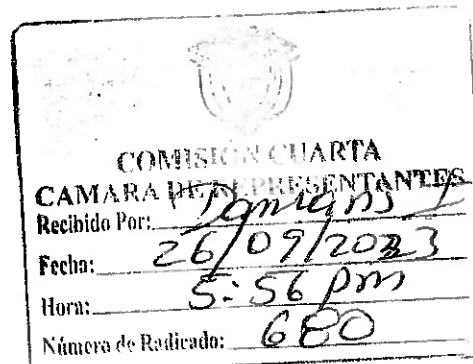 COMISIÓN CUARTA
CAMARA DE REPRESENTANTES
Recibido Por:
Fecha: 26/09/2023
Hora: 5:56 pm
Número de Radicado: 680